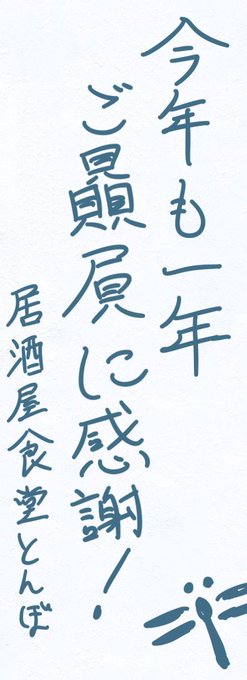 今年も一年
ご贔屓に感謝!
居酒屋食堂とんぼ